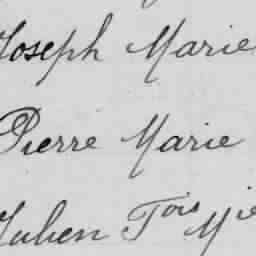 Joseph Marie
Pierre Marie
Julien Fois Mie